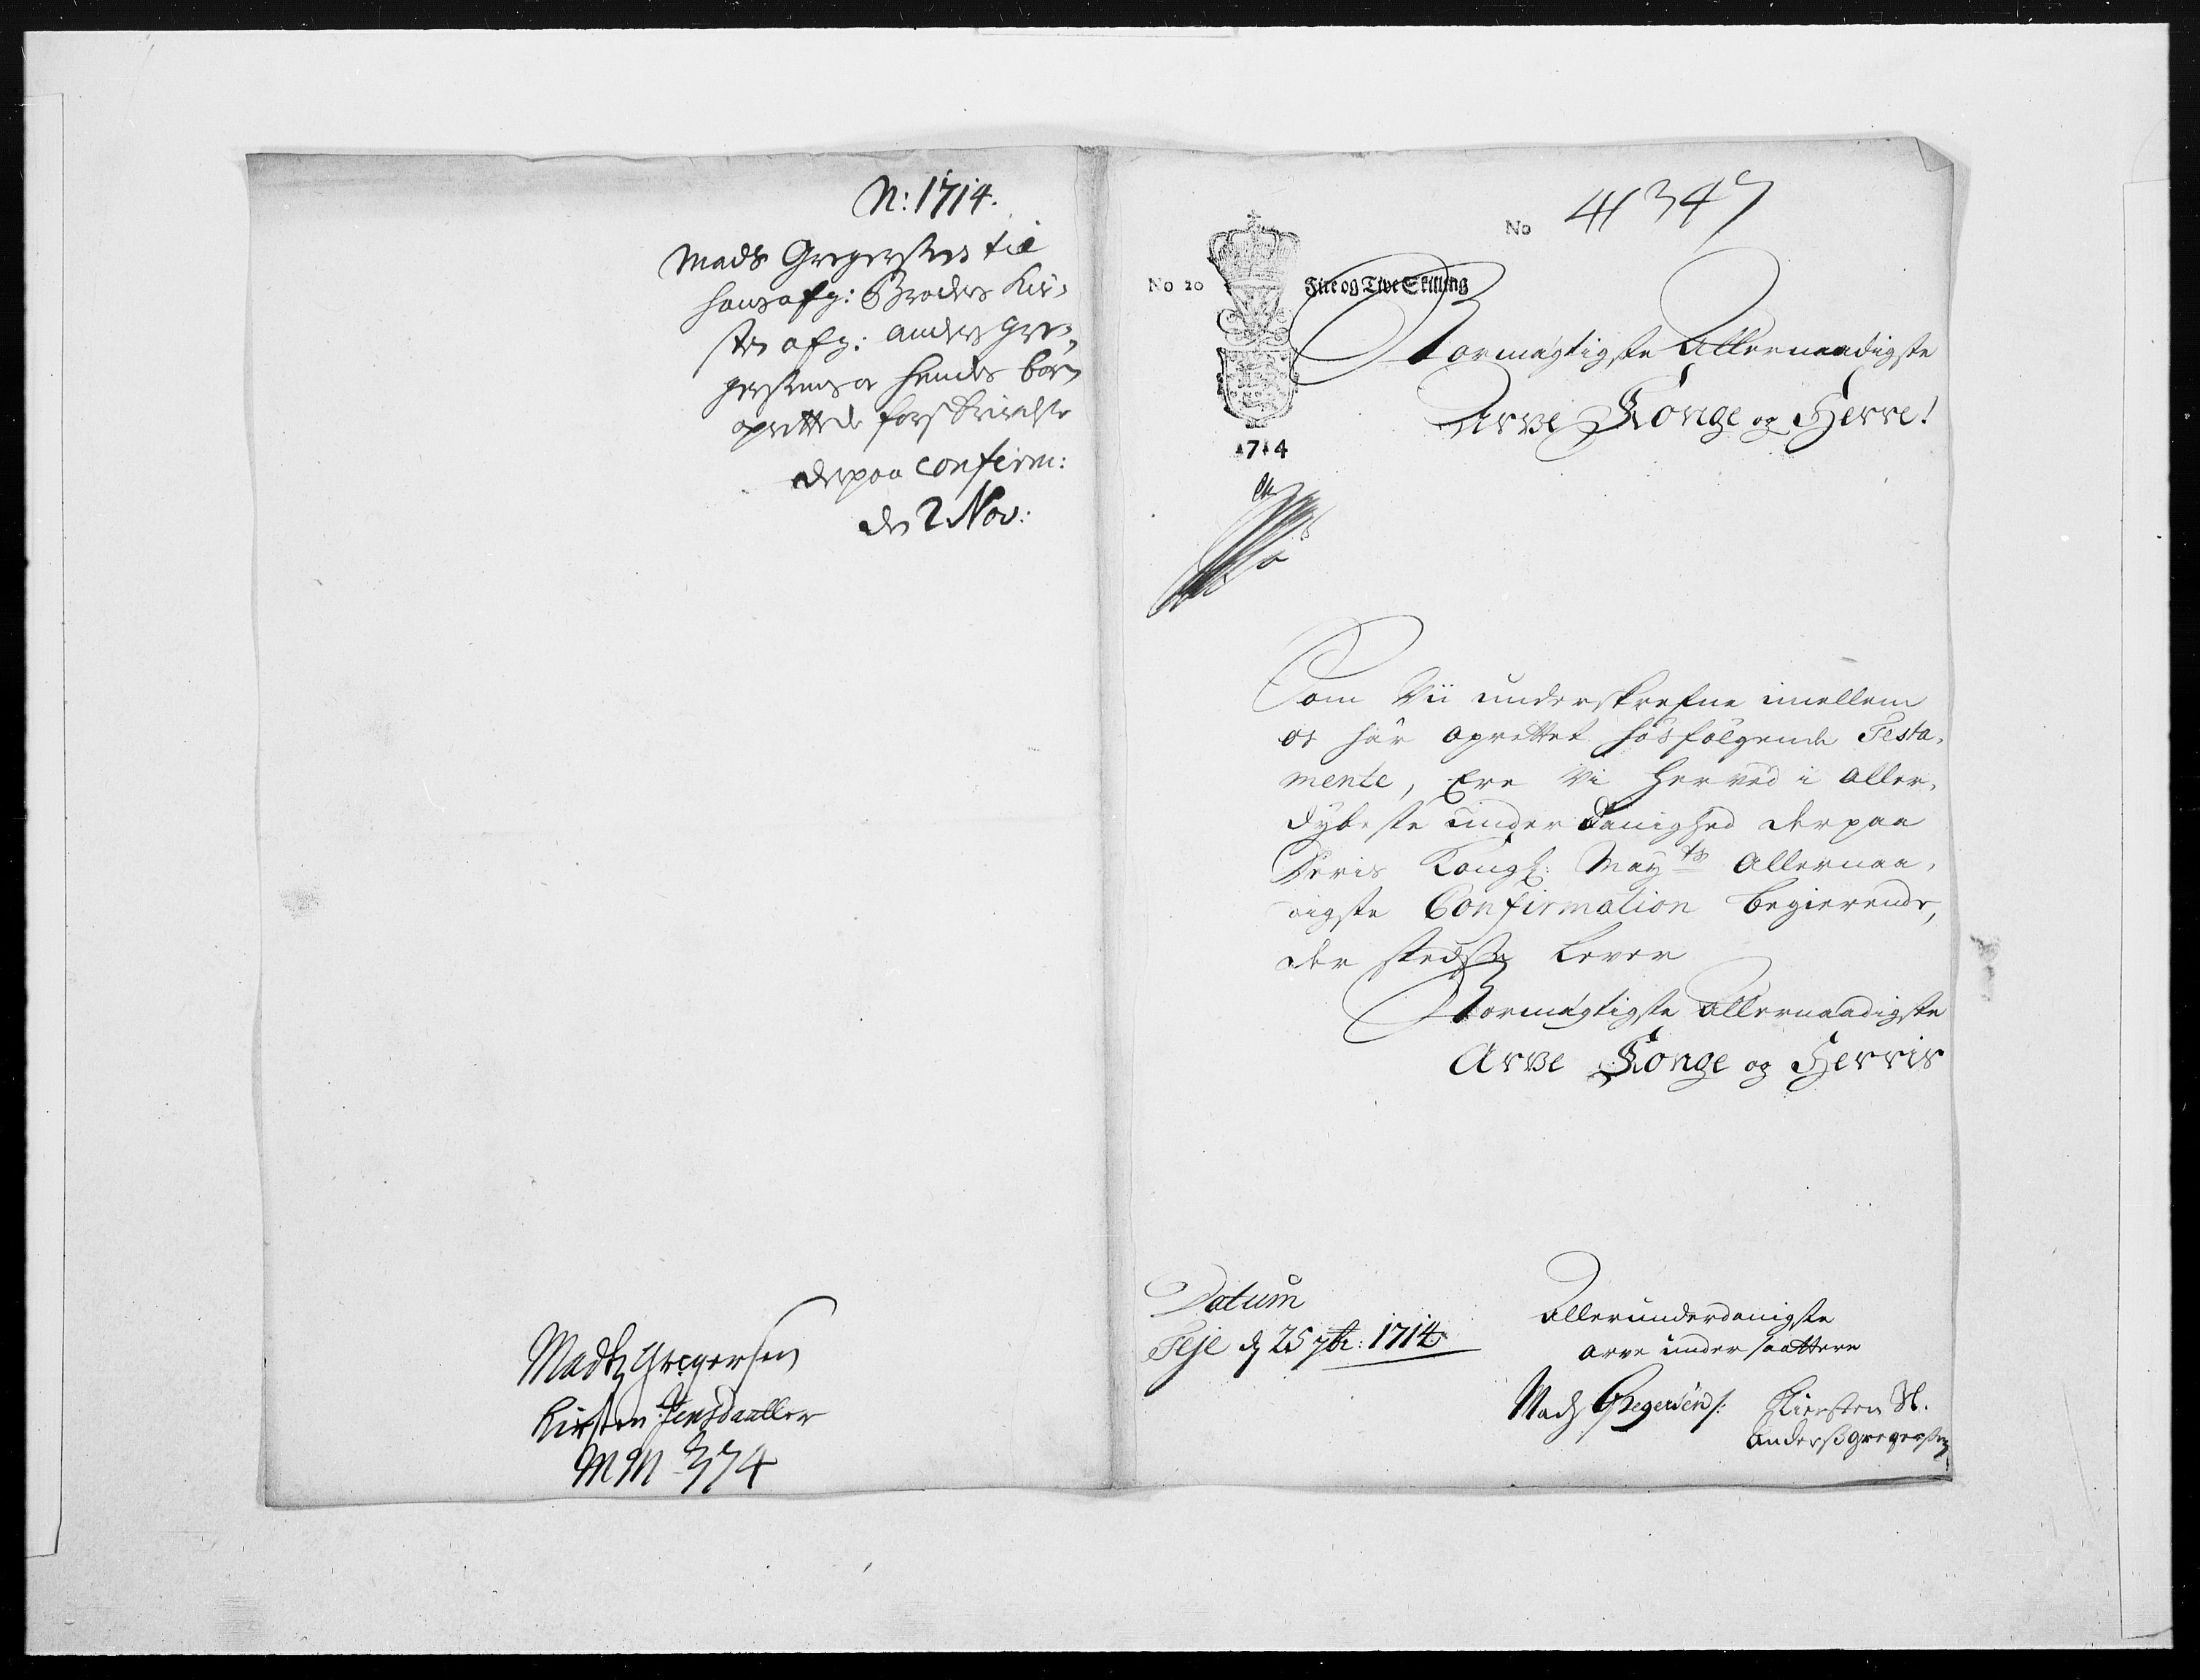 N: 1714.
Mads Gregersens til
hans afg: Broders Kir-
sten afg: Anders Gre-
gersens oc hendes børn
oprettede forskrivelse
derpaa confirm:
den 2 Nov:
Madtz Gregersen
Kirsten Jensdaatter
MM 374
No 41347
No 20 Fire og Tive Skilling
1714
Stormægtigste Allernaadigste
Arve Konge og Herre!
Som Vii underskrefne imellem
os har oprettet hosfølgende Testa-
mente, Ere Vi herved i aller-
dybeste underdanighed derpaa
Deris Kongl: May.ts Allernaa-
digste Confirmation begierende,
der stedse lever
Stormægtigste Allernaadigste
Arve Konge og Herris
Datum
Feje d 25 7br: 1714
Allerunderdanigste
arve undersaattere
Mads Gregersen
Kiersten Sl.
Anders Gregersens